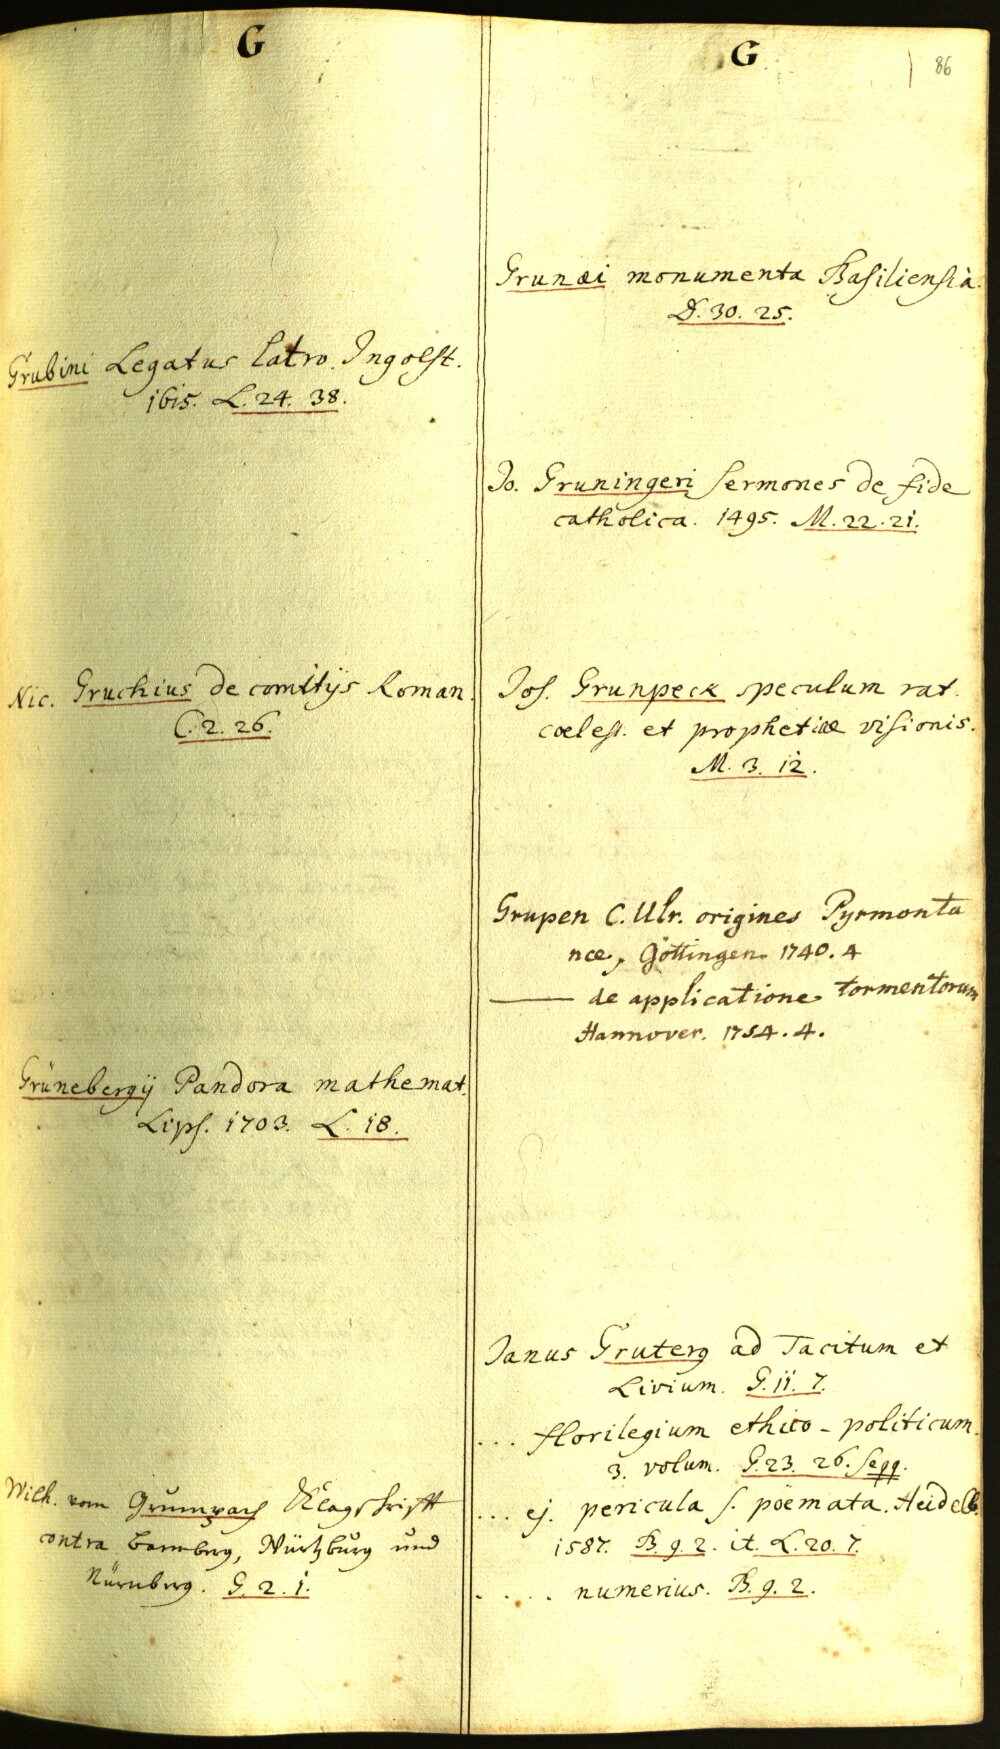 G
Grubini Legatus latro. Ingolst.
1615. L. 24. 38.
Nic. Gruchius de comitijs Roman.
C. 2. 26.
Grünebergij Pandora mathemat.
Lips. 1703. L. 18.
Wilh. vom Grumpach Klagschrifft
contra Bamberg, Würtzburg und
Nürnberg. G. 2. 1.
G
86
Grunæi monumenta Basiliensia.
D. 30. 25.
Jo. Gruningeri sermones de fide
catholica. 1495. M. 22. 21.
Jos. Grunpeck speculum nat.
cœlest. et prophetiæ visionis.
M. 3. 12.
Grupen C. Ulr. origines Pyrmonta
næ, Göttingen 1740. 4
—— de applicatione tormentorum
Hannover. 1754. 4.
Janus Gruterg ad Tacitum et
Livium. G. 11. 7.
... florilegium ethico-politicum.
3. volum. G. 23. 26. seqq.
... ej. pericula s. poëmata. Heidelb.
1587. B. 9. 2. it. L. 20. 7.
.... numerius. B. 9. 2.